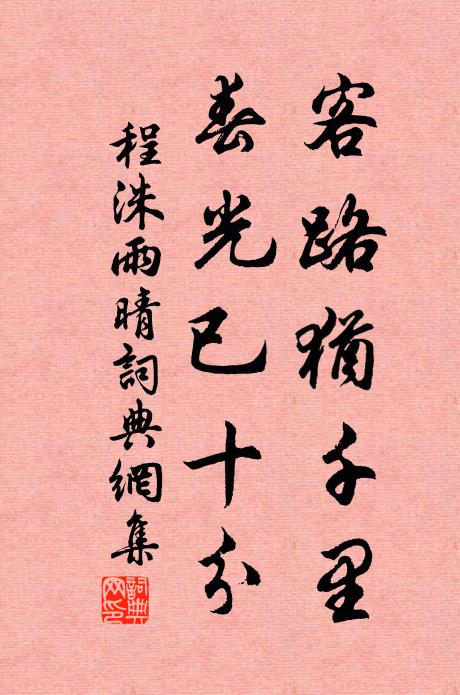 客路猶千里
春光已十分
程洙雨晴詞典網集
詞典網印